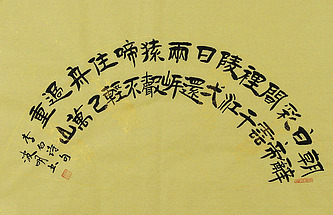 朝辭
白帝
彩雲
間千
裡江
陵弌
日還
兩岍
猿聲
啼不
住輕
舟已
過萬
重山
李白詩句